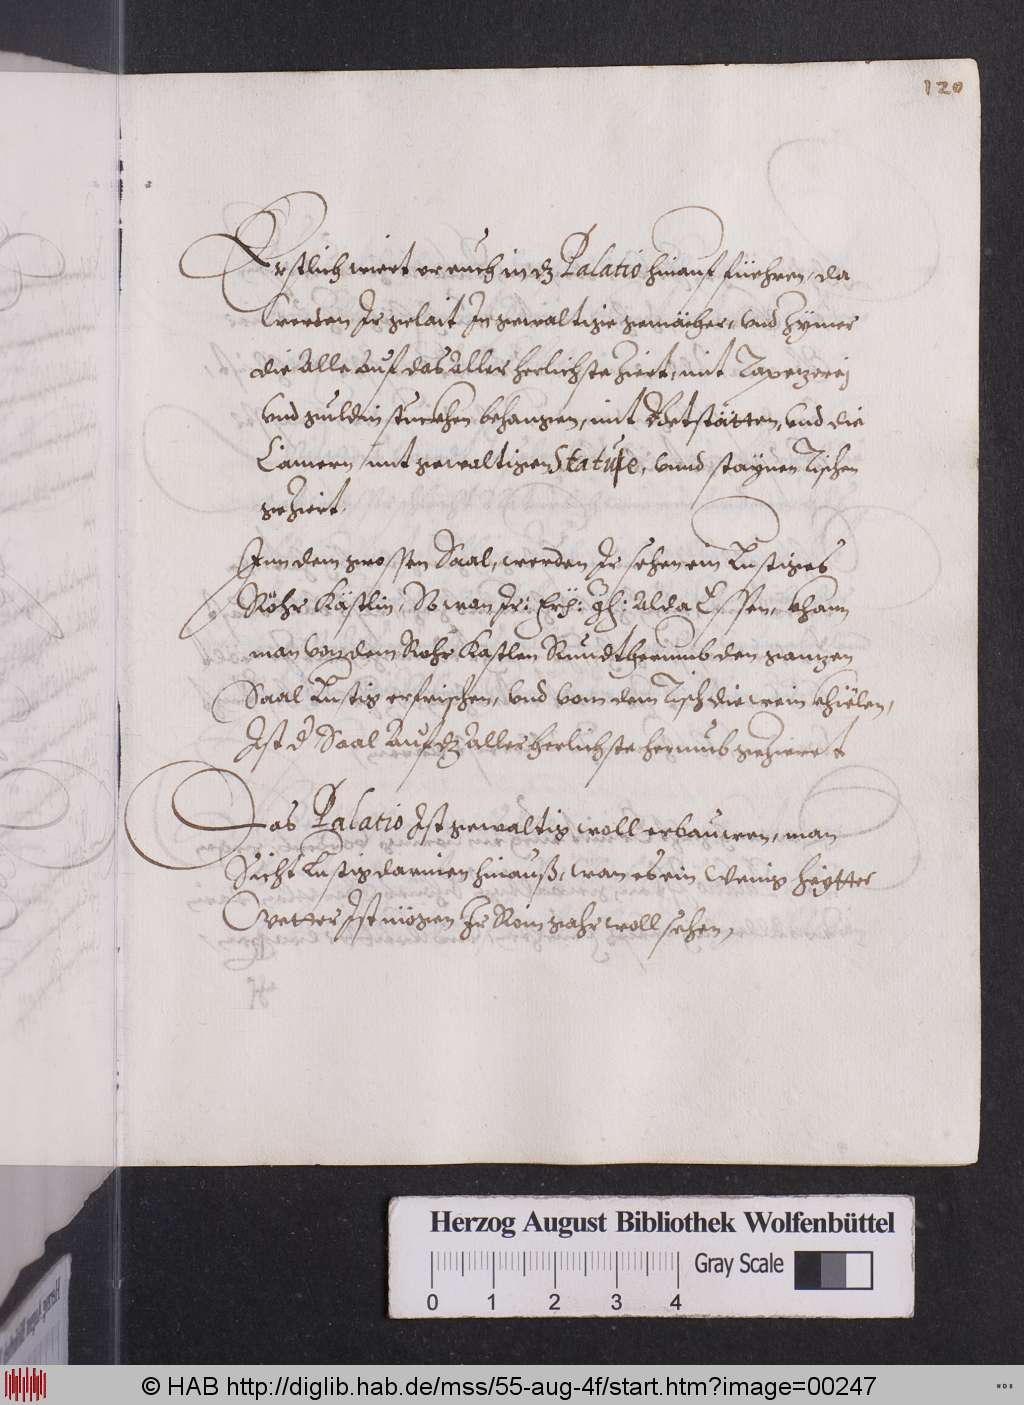 120
Erstlich wiert er euch in dz Palatio hinauf füehren, da
werden Ir gelait In gewaltige gemächer, vnd Zÿmer
die Alle auf das Aller herlichste Ziert, mit Tapezerej
vnd guldin stuckhen behangen, mit Betstätten, vnd die
Camern mit gewaltigen Statue, vnnd staÿnen Tischen
geZiert.
Inn dem grossen Saal, werden Ir sehen ein Lustiges
Röhr Kästlin, So wan Ir: gh: Alda Essen, khann
man von dem Rohr Kastlen Rundtherumb den ganzen
Saal Lustig erfrischen, vnd vom dem Tisch die wein khüelen,
Ist d Saal Auf dz Aller herlichste herumb geZieret
Das Palatio Ist gewaltig woll erbauwen, man
Sicht Lustig darinen hinauß, wan es ein wenig heÿtter
Wetter Ist mögen Ir Rom gahr woll sehen,
Herzog August Bibliothek Wolfenbüttel
Gray Scale
0 1 2 3 4
© HAB http://diglib.hab.de/mss/55-aug-4f/start.htm?image=00247